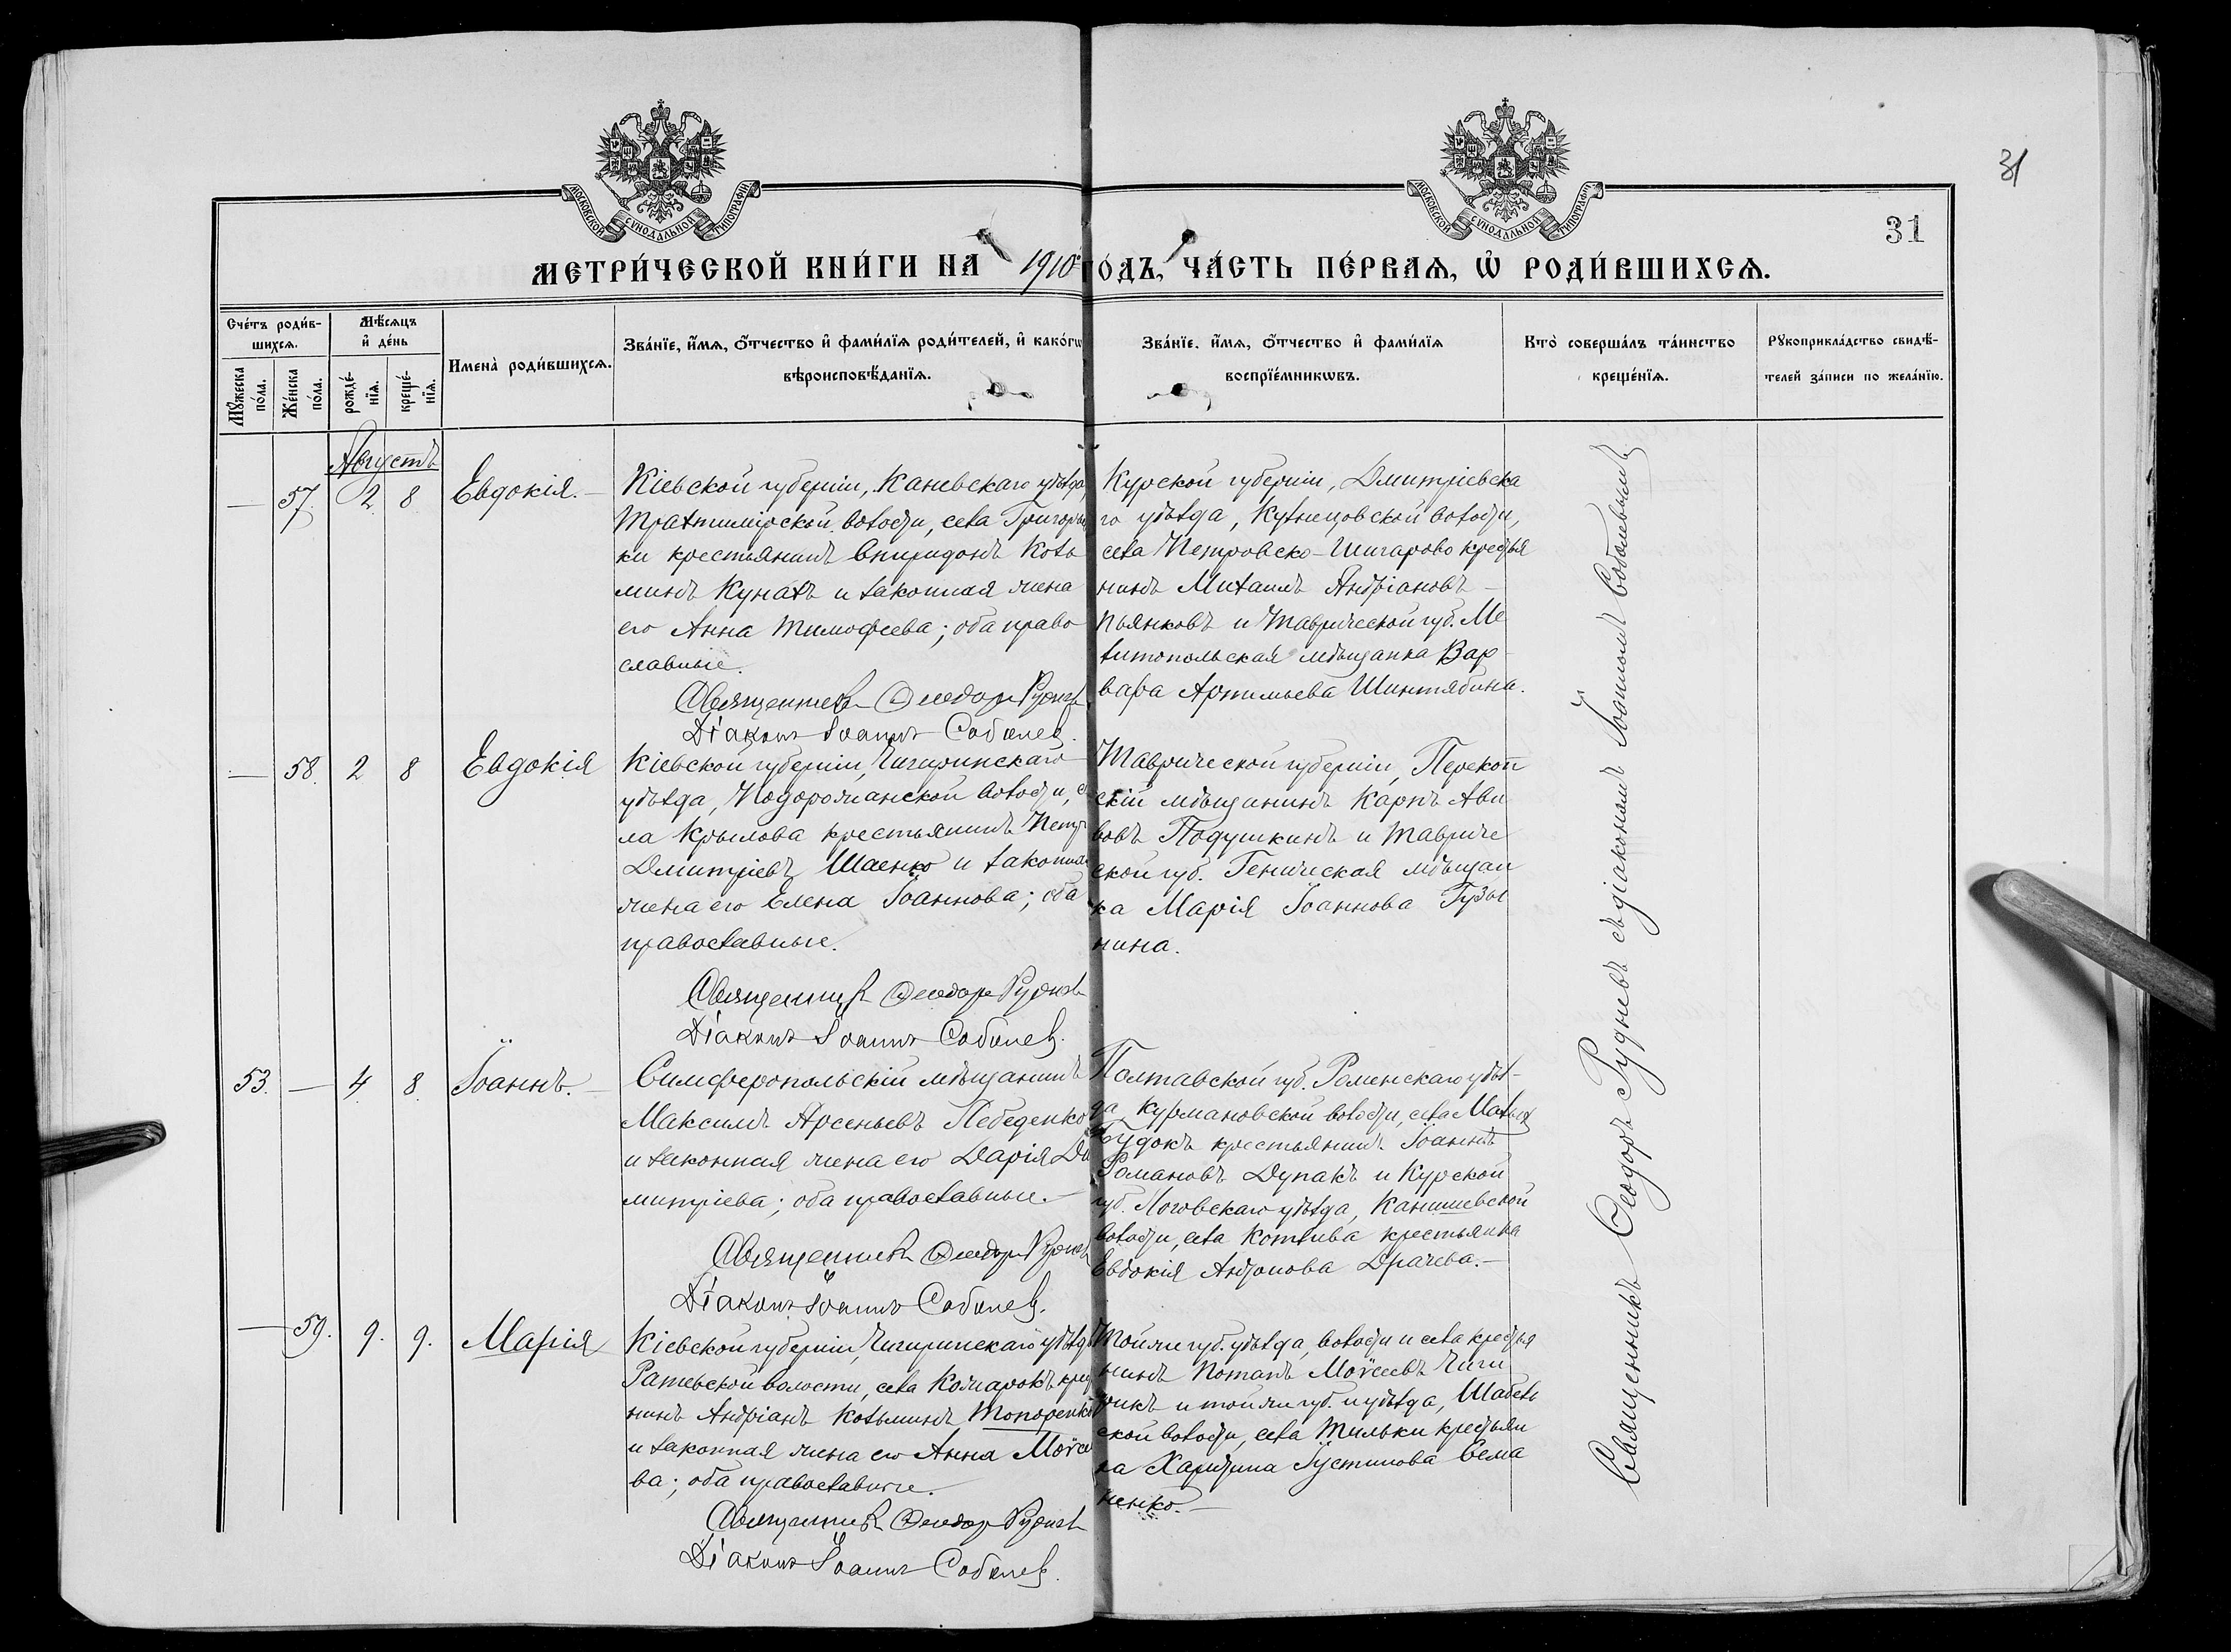 31
31
МОСКОВСКОЙ СѴНОДАЛЬНОЙ ТИПОГРАФІИ
МОСКОВСКОЙ СѴНОДАЛЬНОЙ ТИПОГРАФІИ
МЕТРИ́ЧЕСКОЙ КНИ́ГИ НА 1910 ГО́ДЪ, ЧА́СТЬ ПЕ́РВАѦ, Ѡ҆ РОДИ́ВШИХСѦ.
Сче́тъ роди́в-
шихсѧ.
Мꙋ́жеска по́ла.
Же́нска по́ла.
Мѣ́сѧцъ
и҆ де́нь
рожде́-
нїѧ.
креще́-
нїѧ.
Имена̀ роди́вшихсѧ.
Зва́нїе, и҆́мѧ, ѻ҆́тчество и҆ фами́лїѧ роди́телей, и҆ како́гѡ
вѣроисповѣ́данїѧ.
Зва́нїе, и҆́мѧ, ѻ҆́тчество и҆ фами́лїѧ
воспрїе́мникѡвъ.
Кто̀ соверша́лъ та́инство
креще́нїѧ.
Рꙋкоприкла́дство свидѣ́-
телей за́писи по жела́нїю.
Августъ
— 57. 2 8 Евдокія. —
Кіевской губерніи, Каневскаго уѣзда,
Трахтимірской волости, села Григоръ
ки крестьянинъ Спиридонъ Козь
минъ Куналъ и законная жена
его Анна Тимофеева; оба право
славные.
Священникъ Ѳеодоръ Рудневъ
Діаконъ Іоаннъ Соболев.
Курской губерніи, Дмитріевска
го уѣзда, Кузнецовской волости,
села Петровско-Шигарово крестья
нинъ Михаилъ Андріановъ —
Пьянковъ и Таврической губ. Ме
литопольская мѣщанка Вар
вара Артемьева Шинтябина.
— 58. 2 8 Евдокія
Кіевской губерніи, Чигиринскаго
уѣзда, Подорожанской волости, се
ла Крылова крестьянинъ Петръ
Дмитріевъ Шаенко и законная
жена его Елена Іоаннова; оба
православные.
Священникъ Ѳеодоръ Рудневъ
Діаконъ Іоаннъ Соболев.
Таврической губерніи, Перекоп
скій мѣщанинъ Карпъ Ави
вовъ Подушкинъ и Тавриче
ской губ. Геническая мѣщан
ка Марія Іоаннова Гузы
нина.
53. — 4 8 Іоаннъ. —
Симферопольскій мѣщанинъ
Максимъ Арсеньевъ Лебеденко
и законная жена его Дарія Ди
митріева; оба православные. —
Священникъ Ѳеодоръ Рудневъ
Діаконъ Іоаннъ Соболев.
Полтавской губ. Роменскаго уѣз-
да, Курмановской волости, села Малыхъ
Будокъ крестьянинъ Іоаннъ
Романовъ Дупакъ и Курской
губ. Льговскаго уѣзда, Канишевской
волости, села Котлева крестьянка
Евдокія Антонова Драчева. —
— 59. 9. 9. Марія
Кіевской губерніи, Чигиринскаго уѣзда
Рацевской волости, села Кожарокъ крестья
нинъ Андріанъ Козьминъ Топоренко
и законная жена его Анна Моѵсее
ва; оба православные.
Священникъ Ѳеодоръ Рудневъ
Діаконъ Іоаннъ Соболев.
Той же губ. уѣзда, волости и села крестья
нинъ Потапъ Моѵсеевъ Чиги
рикъ и той же губ. и уѣзда, Шабель
ской волости, села Тильки крестьян
ка Харитина Іустинова Сема
ненко. —
Священникъ Ѳеодоръ Рудневъ съ діакономъ Іоанномъ Соболевымъ